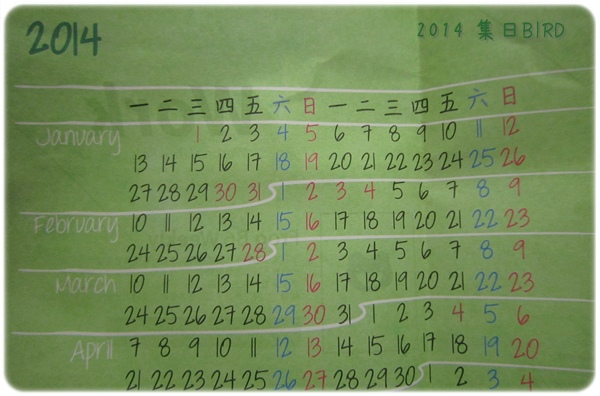 2014
2014 集日BIRD
一 二 三 四 五 六 日 一 二 三 四 五 六 日
January 1 2 3 4 5 6 7 8 9 10 11 12
13 14 15 16 17 18 19 20 21 22 23 24 25 26
27 28 29 30 31 1 2 3 4 5 6 7 8 9
February 10 11 12 13 14 15 16 17 18 19 20 21 22 23
24 25 26 27 28 1 2 3 4 5 6 7 8 9
March 10 11 12 13 14 15 16 17 18 19 20 21 22 23
24 25 26 27 28 29 30 31 1 2 3 4 5 6
April 7 8 9 10 11 12 13 14 15 16 17 18 19 20
21 22 23 24 25 26 27 28 29 30 1 2 3 4